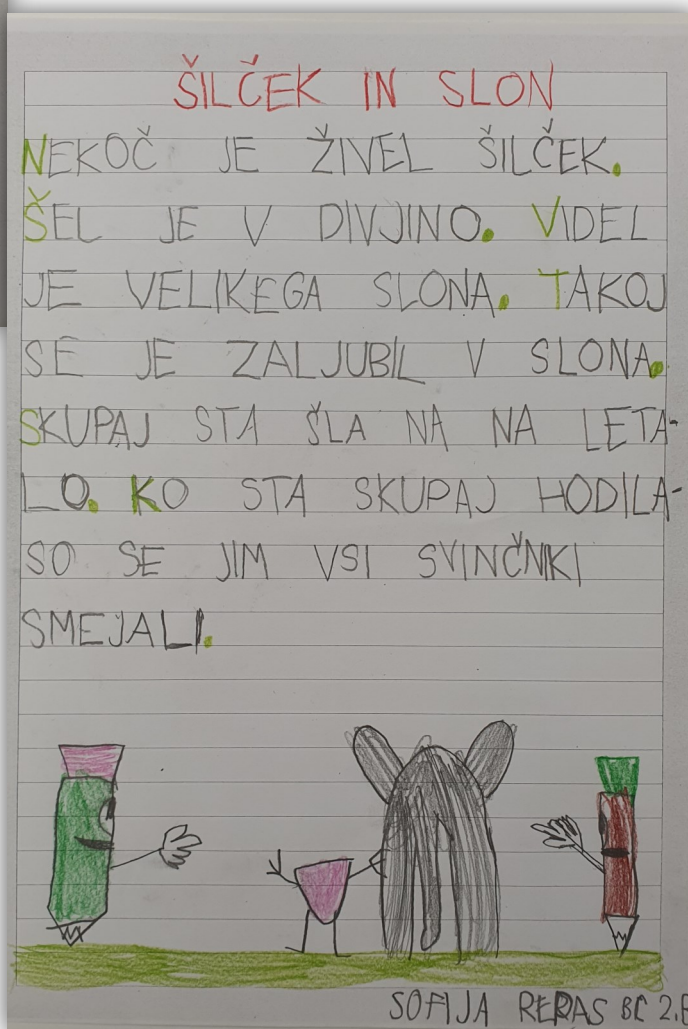 ŠILČEK IN SLON
NEKOČ JE ŽIVEL ŠILČEK.
ŠEL JE V DIVJINO. VIDEL
JE VELIKEGA SLONA. TAKOJ
SE JE ZALJUBIL V SLONA.
SKUPAJ STA ŠLA NA NA LETA-
LO. KO STA SKUPAJ HODILA-
SO SE JIM VSI SVINČNIKI
SMEJALI.
SOFIJA